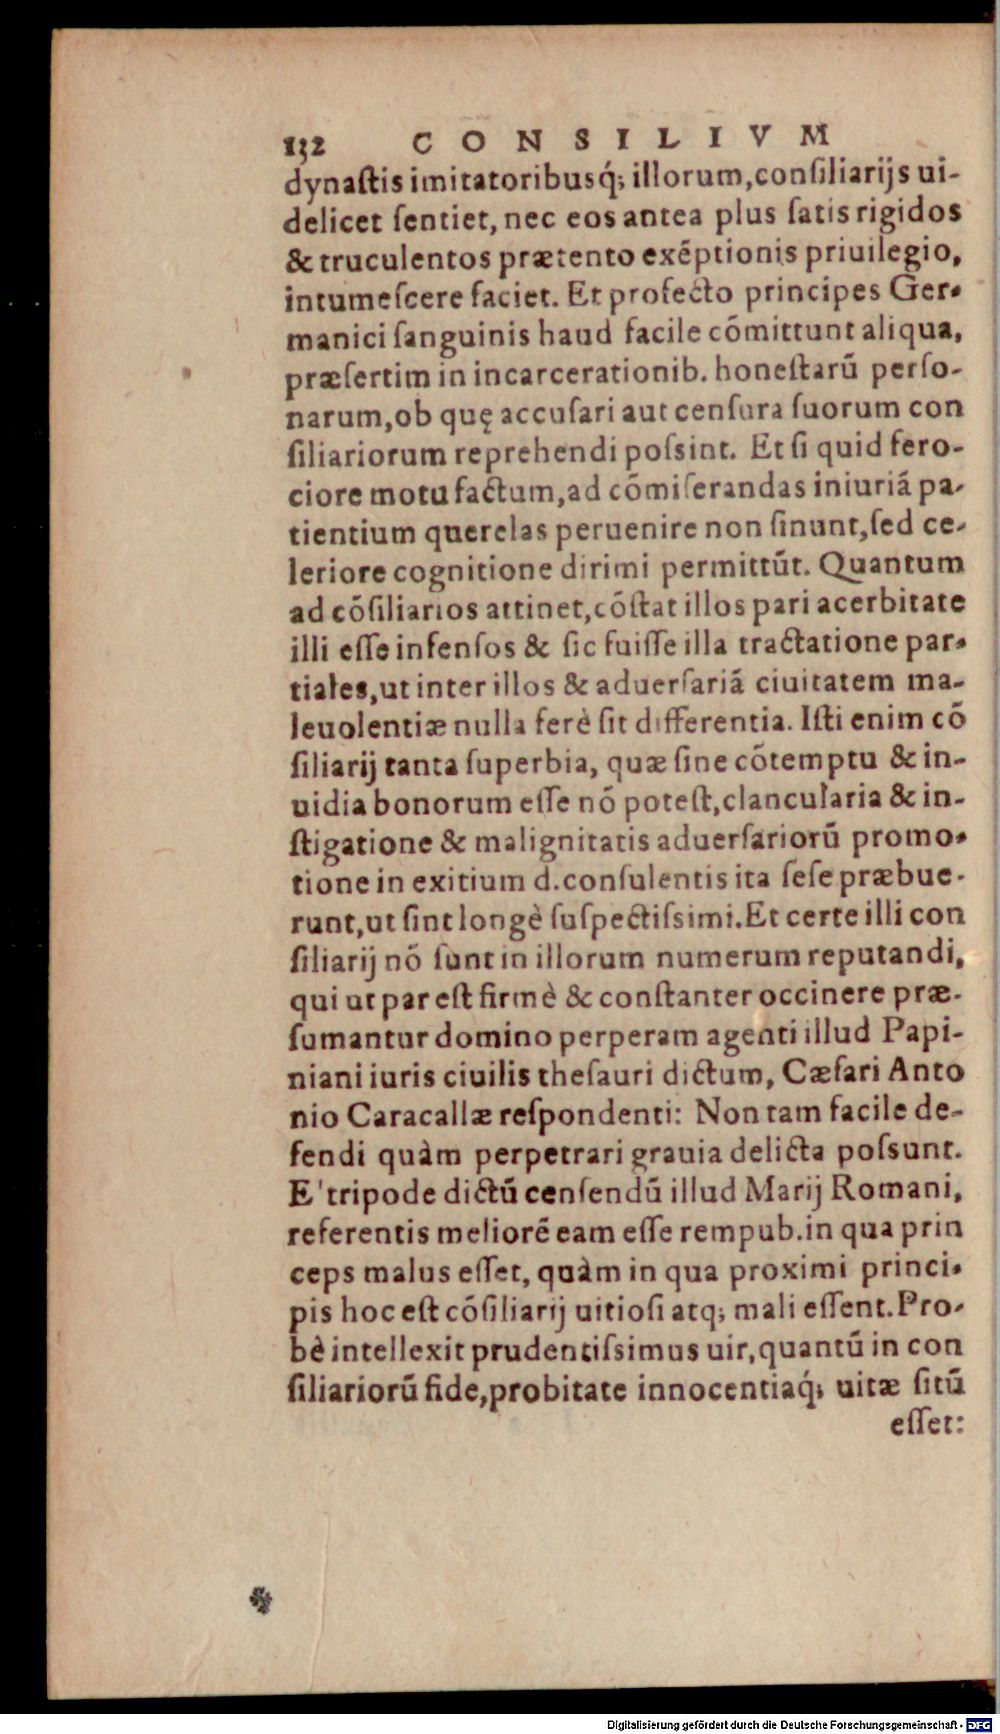 132 CONSILIVM
dynaſtis imitatoribusq́; illorum, conſiliarijs ui-
delicet ſentiet, nec eos antea plus ſatis rigidos
& truculentos prætento exẽptionis priuilegio,
intumeſcere faciet. Et profecto principes Ger-
manici ſanguinis haud facile cõmittunt aliqua,
præſertim in incarcerationib. honeſtarũ perſo-
narum, ob quę accuſari aut cenſura ſuorum con
ſiliariorum reprehendi poſsint. Et ſi quid fero-
ciore motu factum, ad cõmiſerandas iniuriã pa-
tientium querelas peruenire non ſinunt, ſed ce-
leriore cognitione dirimi permittũt. Quantum
ad cõſiliarios attinet, cõſtat illos pari acerbitate
illi eſſe infenſos & ſic fuiſſe illa tractatione par-
tiales, ut inter illos & aduerſariã ciuitatem ma-
leuolentiæ nulla ferè ſit differentia. Iſti enim cõ
ſiliarij tanta ſuperbia, quæ ſine cõtemptu & in-
uidia bonorum eſſe nõ poteſt, clancularia & in-
ſtigatione & malignitatis aduerſariorũ promo-
tione in exitium d. conſulentis ita ſeſe præbue-
runt, ut ſint longè ſuſpectiſsimi. Et certe illi con
ſiliarij nõ ſunt in illorum numerum reputandi,
qui ut par eſt firmè & conſtanter occinere præ-
ſumantur domino perperam agenti illud Papi-
niani iuris ciuilis theſauri dictum, Cæſari Anto
nio Caracallæ reſpondenti: Non tam facile de-
fendi quàm perpetrari grauia delicta poſsunt.
E' tripode dictũ cenſendũ illud Marij Romani,
referentis meliorẽ eam eſſe rempub. in qua prin
ceps malus eſſet, quàm in qua proximi princi-
pis hoc eſt cõſiliarij uitioſi atq; mali eſſent. Pro-
bè intellexit prudentiſsimus uir, quantũ in con
ſiliariorũ fide, probitate innocentiaq́; uitæ ſitũ
eſſet:
Digitalisierung gefördert durch die Deutsche Forschungsgemeinschaft - DFG